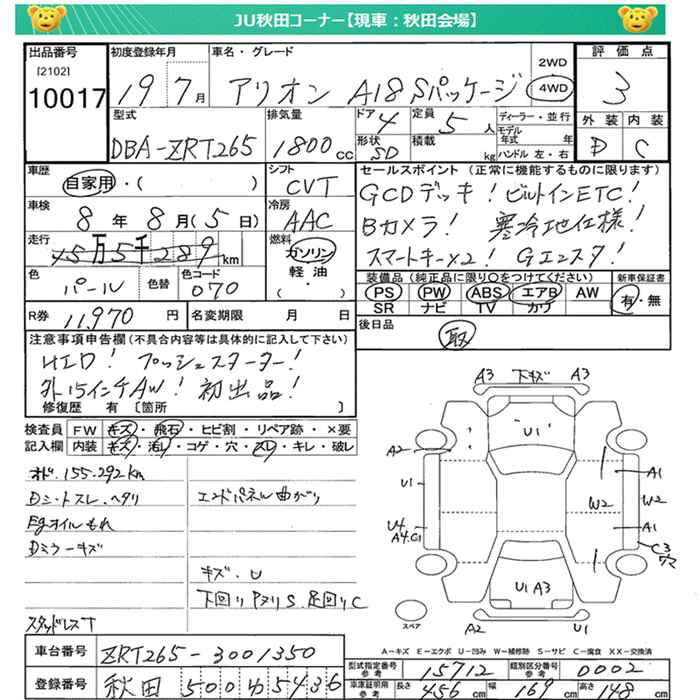 JU秋田コーナー【現車：秋田会場】
出品番号
[2102]
10017
初度登録年月
19 7月
車名・グレード
アリオン A18 Sパッケージ
2WD
4WD
評価点
3
外装 内装
D C
型式
DBA-ZRT265
排気量
1800cc
ドア
4
定員
5人
形状
SD
積載
kg
ディーラー・並行
モデル年式 年
ハンドル 左・右
車歴
自家用・( )
シフト
CVT
セールスポイント（正常に機能するものに限ります）
GCDデッキ！ビルトインETC！
Bカメラ！寒冷地仕様！
スマートキー×2！Gエンスタ！
車検
8年8月(5日)
冷房
AAC
走行
15万5千289km
燃料
ガソリン
軽油
( )
色
パール
色替
色コード
070
装備品（純正品に限り○をつけてください）
新車保証書
PS PW ABS エアB AW
SR ナビ TV カワ
有・無
R券 11,970円
名変期限 月 日
後日品
取
注意事項申告欄（不具合内容等は具体的に記入して下さい）
HID！プッシュスターター！
外15インチAW！初出品！
修復歴 有［箇所 ］
検査員記入欄
FW キズ・飛石・ヒビ割・リペア跡・×要
内装 キズ・汚レ・コゲ・穴・スレ・キレ・破レ
オド.155.292km
Dシートスレ.ヘタリ
Egオイルもれ
Dミラーキズ
スタッドレスT
エンドパネル曲がり
キズ.U
下回りPヌリS.足回りC
A3 下キズ A3
U1
A2
U1
A1
W2 W2
U4
A4.C1
A1
C3
ワレ
U1 A3
スペア
A2 U1
A－キズ E－エクボ U－凹み W－補修跡 S－サビ C－腐食 XX－交換済
車台番号
ZRT265-3001350
登録番号
秋田 500 ゆ 5436
型式指定番号
参考
15712
類別区分番号
参考
0002
車庫証明用
参考
長さ 456cm 幅 169cm 高さ 148cm